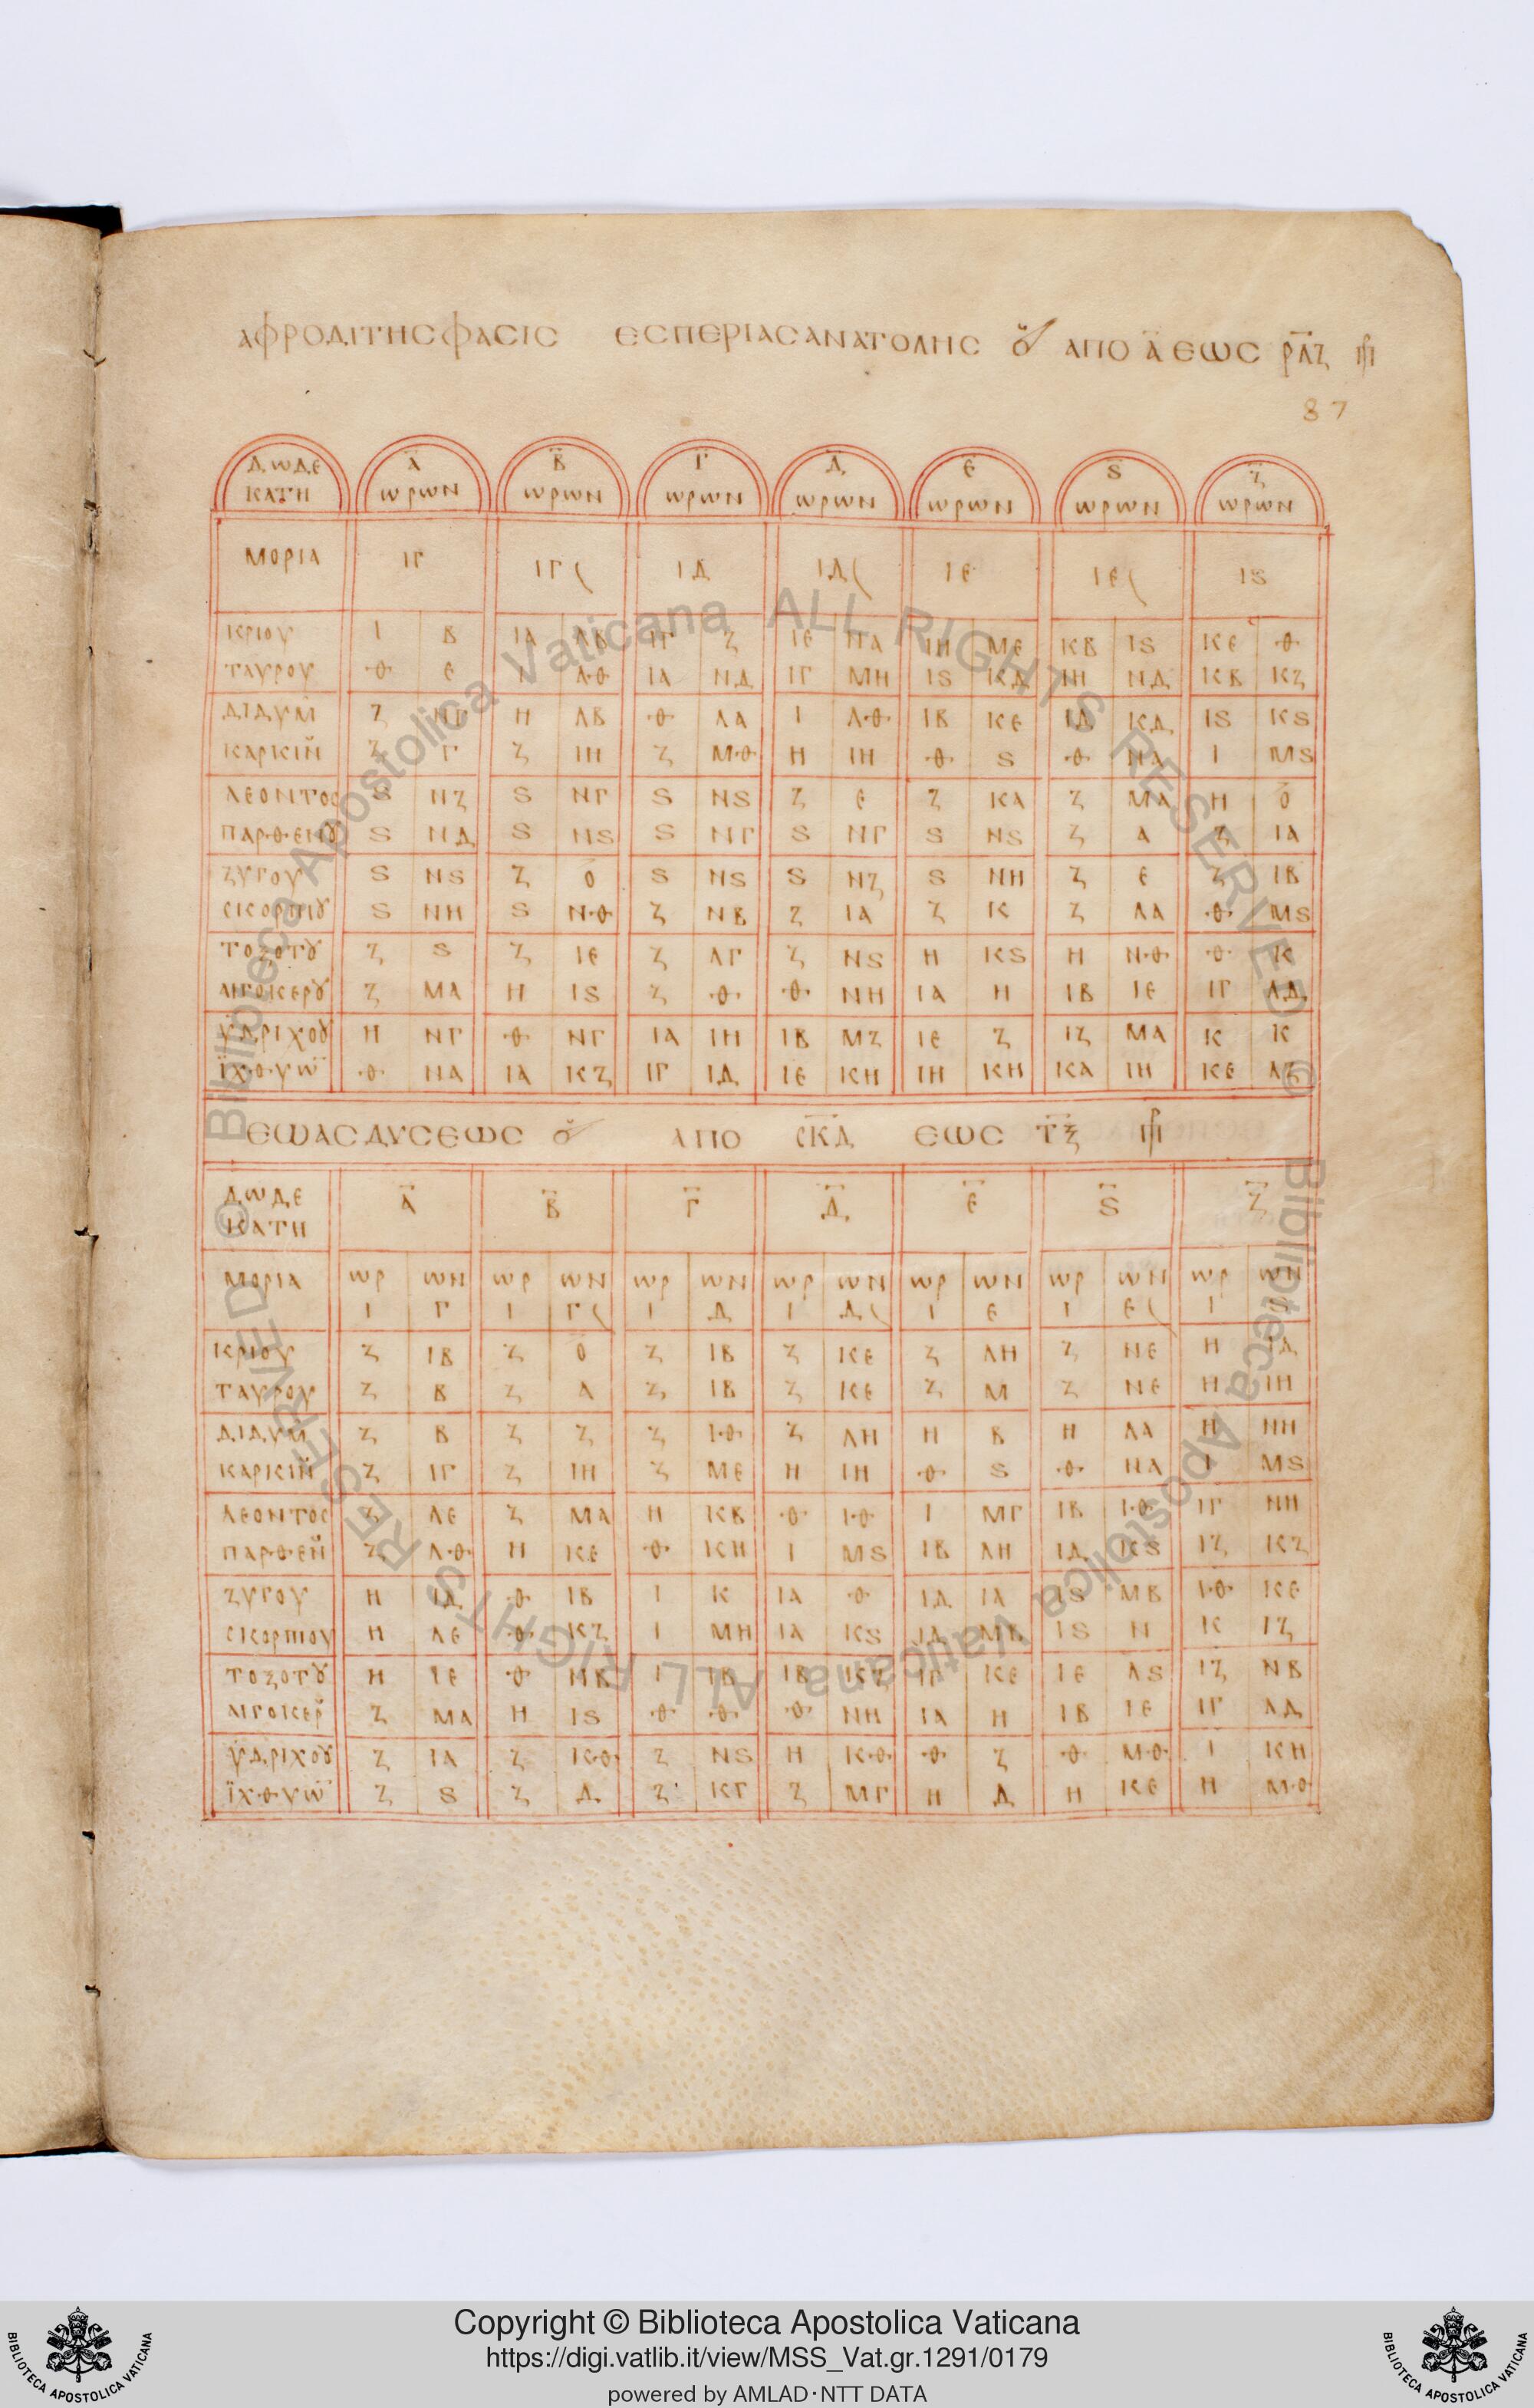 ΑΦΡΟΔΙΤΗС ΦΑСΙС ΕСΠΕΡΙΑС ΑΝΑΤΟΛΗС ΑΠΟ Α ΕΩС ΡΛΖ
87
ΔΩΔΕ Α Β Γ Δ Ε Ϛ Ζ
ΚΑΤΗ ΩΡΩΝ ΩΡΩΝ ΩΡΩΝ ΩΡΩΝ ΩΡΩΝ ΩΡΩΝ ΩΡΩΝ
ΜΟΡΙΑ ΙΓ ΙΓ ΙΔ ΙΔ ΙΕ ΙΕ ΙϚ
ΚΡΙΟΥ Ι Β ΙΑ ΛΒ ΙΓ Ζ ΙΕ ΝΑ ΙΗ ΜΕ ΚΒ ΙϚ ΚΕ Θ
ΤΑΥΡΟΥ Θ Ε Ι ΛΘ ΙΑ ΝΔ ΙΓ ΜΗ ΙϚ ΚΔ ΙΗ ΝΔ ΚΒ ΚΖ
ΔΙΔΥΜ Ζ ΝΓ Η ΛΒ Θ ΛΑ Ι ΛΘ ΙΒ ΚΕ ΙΔ ΚΔ ΙϚ ΚϚ
ΚΑΡΚΙΝ Ζ Γ Ζ ΙΗ Ζ ΜΘ Η ΙΗ Θ Ϛ Θ ΝΑ Ι ΜϚ
ΛΕΟΝΤΟС Ϛ ΝΖ Ϛ ΝΓ Ϛ ΝϚ Ζ Ε Ζ ΚΑ Ζ ΜΑ Η Ο
ΠΑΡΘΕΝΟΥ Ϛ ΝΔ Ϛ ΝϚ Ϛ ΝΓ Ϛ ΝΓ Ϛ ΝϚ Ζ Α Ζ ΙΑ
ΖΥΓΟΥ Ϛ ΝϚ Ζ Ο Ϛ ΝϚ Ϛ ΝΖ Ϛ ΝΗ Ζ Ε Ζ ΙΒ
СΚΟΡΠΙΟΥ Ϛ ΝΗ Ϛ ΝΘ Ζ ΝΒ Ζ ΙΑ Ζ Κ Ζ ΛΑ Θ ΜϚ
ΤΟΞΟΤΟΥ Ζ Ϛ Ζ ΙΕ Ζ ΛΓ Ζ ΝϚ Η ΚϚ Η ΝΘ Θ Κ
ΑΙΓΟΚΕΡΟΥ Ζ ΜΑ Η ΙϚ Ζ Θ Θ ΝΗ ΙΑ Η ΙΒ ΙΕ ΙΓ ΛΔ
ΥΔΡΙΧΟΟΥ Η ΝΓ Θ ΝΓ ΙΑ ΙΗ ΙΒ ΜΖ ΙΕ Ζ ΙΖ ΜΑ Κ Κ
ΙΧΘΥΩ Θ ΝΑ ΙΑ ΚΖ ΙΓ ΙΔ ΙΕ ΚΗ ΙΗ ΚΗ ΚΑ ΙΗ ΚΕ ΛΖ
ΕΩΑС ΔΥСΕΩС ΑΠΟ СΚΔ ΕΩС ΤΞ
ΔΩΔΕ Α Β Γ Δ Ε Ϛ Ζ
ΚΑΤΗ
ΜΟΡΙΑ ΩΡ ΩΝ ΩΡ ΩΝ ΩΡ ΩΝ ΩΡ ΩΝ ΩΡ ΩΝ ΩΡ ΩΝ ΩΡ ΩΝ
Ι Γ Ι Γ Ι Δ Ι Δ Ι Ε Ι Ε Ι Ϛ
ΚΡΙΟΥ Ζ ΙΒ Ζ Ο Ζ ΙΒ Ζ ΚΕ Ζ ΛΗ Ζ ΝΕ Η ΙΔ
ΤΑΥΡΟΥ Ζ Β Ζ Α Ζ ΙΒ Ζ ΚΕ Ζ Μ Ζ ΝΕ Η ΙΗ
ΔΙΔΥΜ Ζ Β Ζ Ζ Ζ ΙΘ Ζ ΛΗ Η Β Η ΛΑ Η ΝΗ
ΚΑΡΚΙΝ Ζ ΙΓ Ζ ΙΗ Ζ ΜΕ Η ΙΗ Θ Ϛ Θ ΝΑ Ι ΜϚ
ΛΕΟΝΤΟС Ζ ΛΕ Ζ ΜΑ Η ΚΒ Θ ΙΘ Ι ΜΓ ΙΒ ΙΘ ΙΓ ΝΗ
ΠΑΡΘΕΝ Ζ ΛΘ Η ΚΕ Θ ΚΗ Ι ΜϚ ΙΒ ΛΗ ΙΔ ΚϚ ΙΖ ΚΖ
ΖΥΓΟΥ Η ΙΔ Θ ΙΒ Ι Κ ΙΑ Θ ΙΔ ΙΑ ΙϚ ΜΒ ΙΘ ΚΕ
СΚΟΡΠΙΟΥ Η ΛΕ Θ ΚΖ Ι ΜΗ ΙΑ ΚϚ ΙΔ ΜΒ ΙϚ Η Κ ΙΖ
ΤΟΞΟΤΟΥ Η ΙΕ Θ ΝΒ Ι ΙΒ ΙΒ ΚΖ ΙΓ ΚΕ ΙΕ ΛϚ ΙΖ ΝΒ
ΑΙΓΟΚΕΡ Ζ ΜΑ Η ΙϚ Θ Θ Θ ΝΗ ΙΑ Η ΙΒ ΙΕ ΙΓ ΛΔ
ΥΔΡΙΧΟΟΥ Ζ ΙΑ Ζ ΚΘ Ζ ΝϚ Η ΚΘ Θ Ζ Θ ΜΘ Ι ΚΗ
ΙΧΘΥΩ Ζ Ϛ Ζ Δ Ζ ΚΓ Ζ ΜΓ Η Δ Η ΚΕ Η ΜΘ
© Biblioteca Apostolica Vaticana ALL RIGHTS RESERVED © Biblioteca Apostolica Vaticana ALL RIGHTS RESERVED
Copyright © Biblioteca Apostolica Vaticana
https://digi.vatlib.it/view/MSS_Vat.gr.1291/0179
powered by AMLAD·NTT DATA
BIBLIOTECA APOSTOLICA VATICANA
BIBLIOTECA APOSTOLICA VATICANA